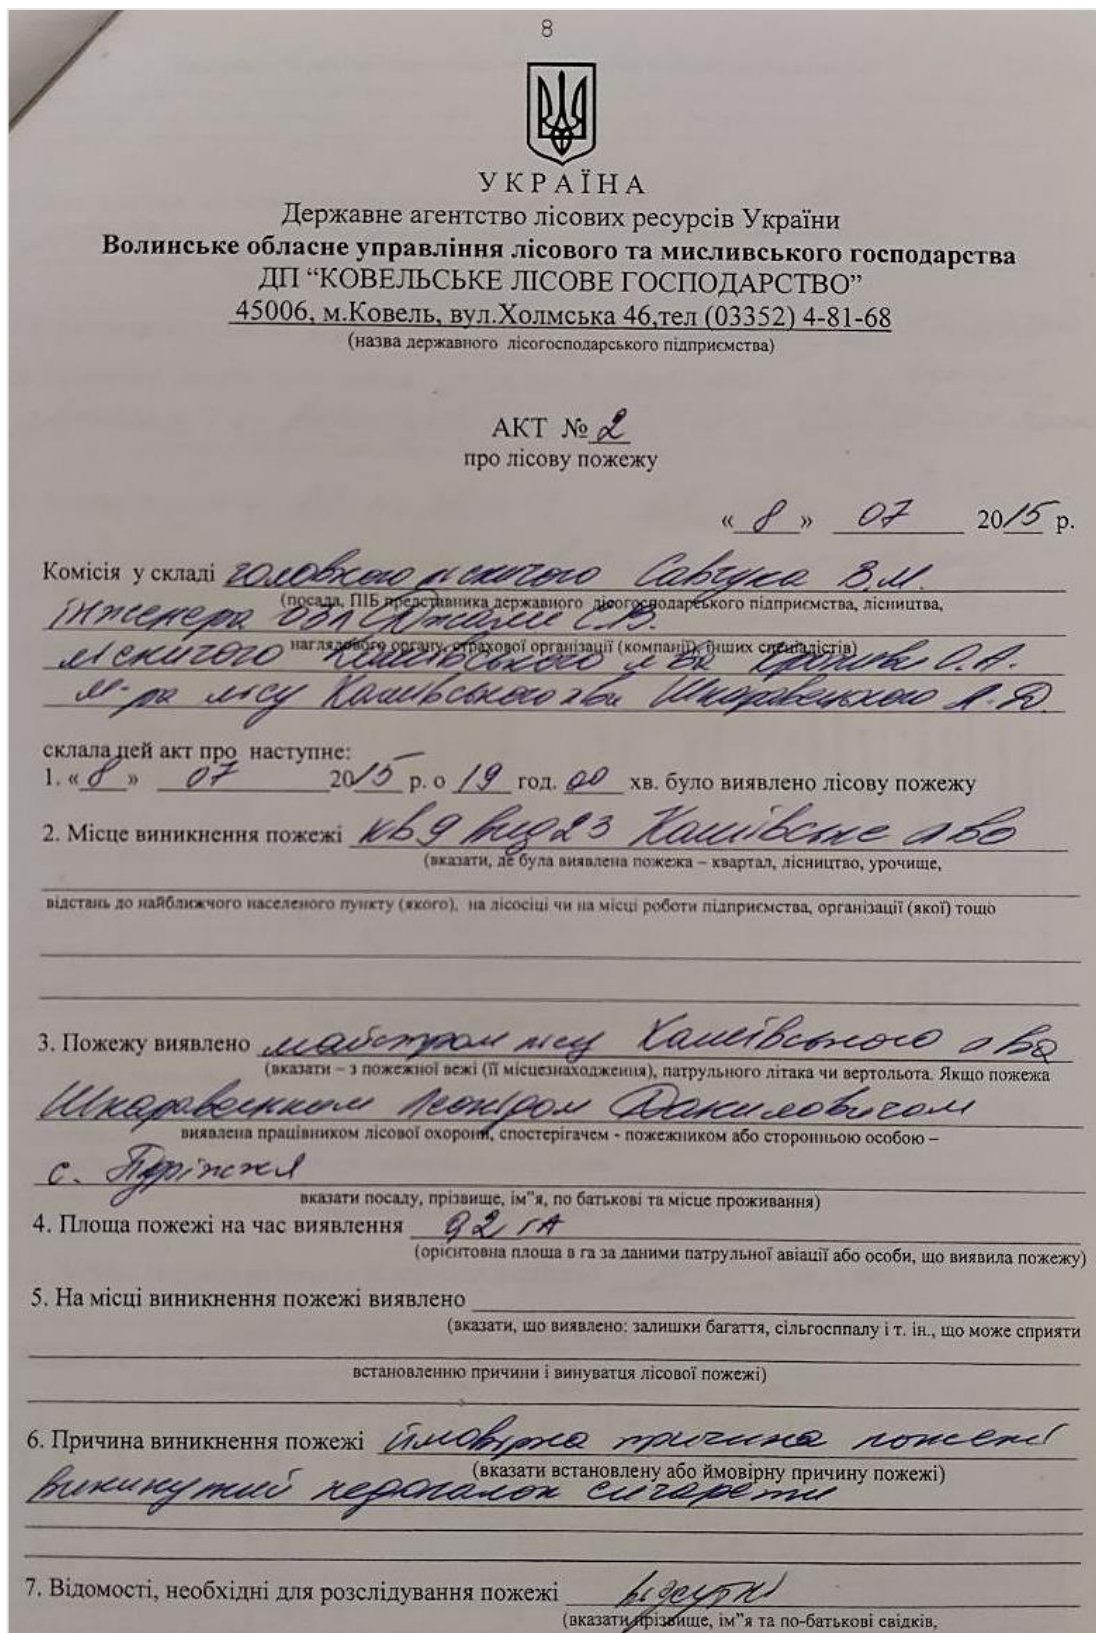 8
УКРАЇНА
Державне агентство лісових ресурсів України
Волинське обласне управління лісового та мисливського господарства
ДП “КОВЕЛЬСЬКЕ ЛІСОВЕ ГОСПОДАРСТВО”
45006, м.Ковель, вул.Холмська 46,тел (03352) 4-81-68
(назва державного лісогосподарського підприємства)
АКТ № 2
про лісову пожежу
« 8 » 07 2015 р.
Комісія у складі головного лісничого Савчука В.М.
(посада, ПІБ представника державного лісогосподарського підприємства, лісництва,
інженера
наглядового органу, страхової організації (компанії), інших спеціалістів)
лісничого О.А.
м-ра лісу
склала цей акт про наступне:
1. « 8 » 07 2015 р. о 19 год. 00 хв. було виявлено лісову пожежу
2. Місце виникнення пожежі кв 9 вид 23
(вказати, де була виявлена пожежа – квартал, лісництво, урочище,
відстань до найближчого населеного пункту (якого), на лісосіці чи на місці роботи підприємства, організації (якої) тощо
3. Пожежу виявлено майстром лісу
(вказати – з пожежної вежі (її місцезнаходження), патрульного літака чи вертольота. Якщо пожежа
Даниловичом
виявлена працівником лісової охорони, спостерігачем - пожежником або сторонньою особою –
с.
вказати посаду, прізвище, ім"я, по батькові та місце проживання)
4. Площа пожежі на час виявлення 0,2 га
(орієнтовна площа в га за даними патрульної авіації або особи, що виявила пожежу)
5. На місці виникнення пожежі виявлено
(вказати, що виявлено: залишки багаття, сільгосппалу і т. ін., що може сприяти
встановленню причини і винуватця лісової пожежі)
6. Причина виникнення пожежі ймовірна причина пожежі
(вказати встановлену або ймовірну причину пожежі)
викинутий недопалок сигарети
7. Відомості, необхідні для розслідування пожежі відсутні
(вказати прізвище, ім"я та по-батькові свідків,